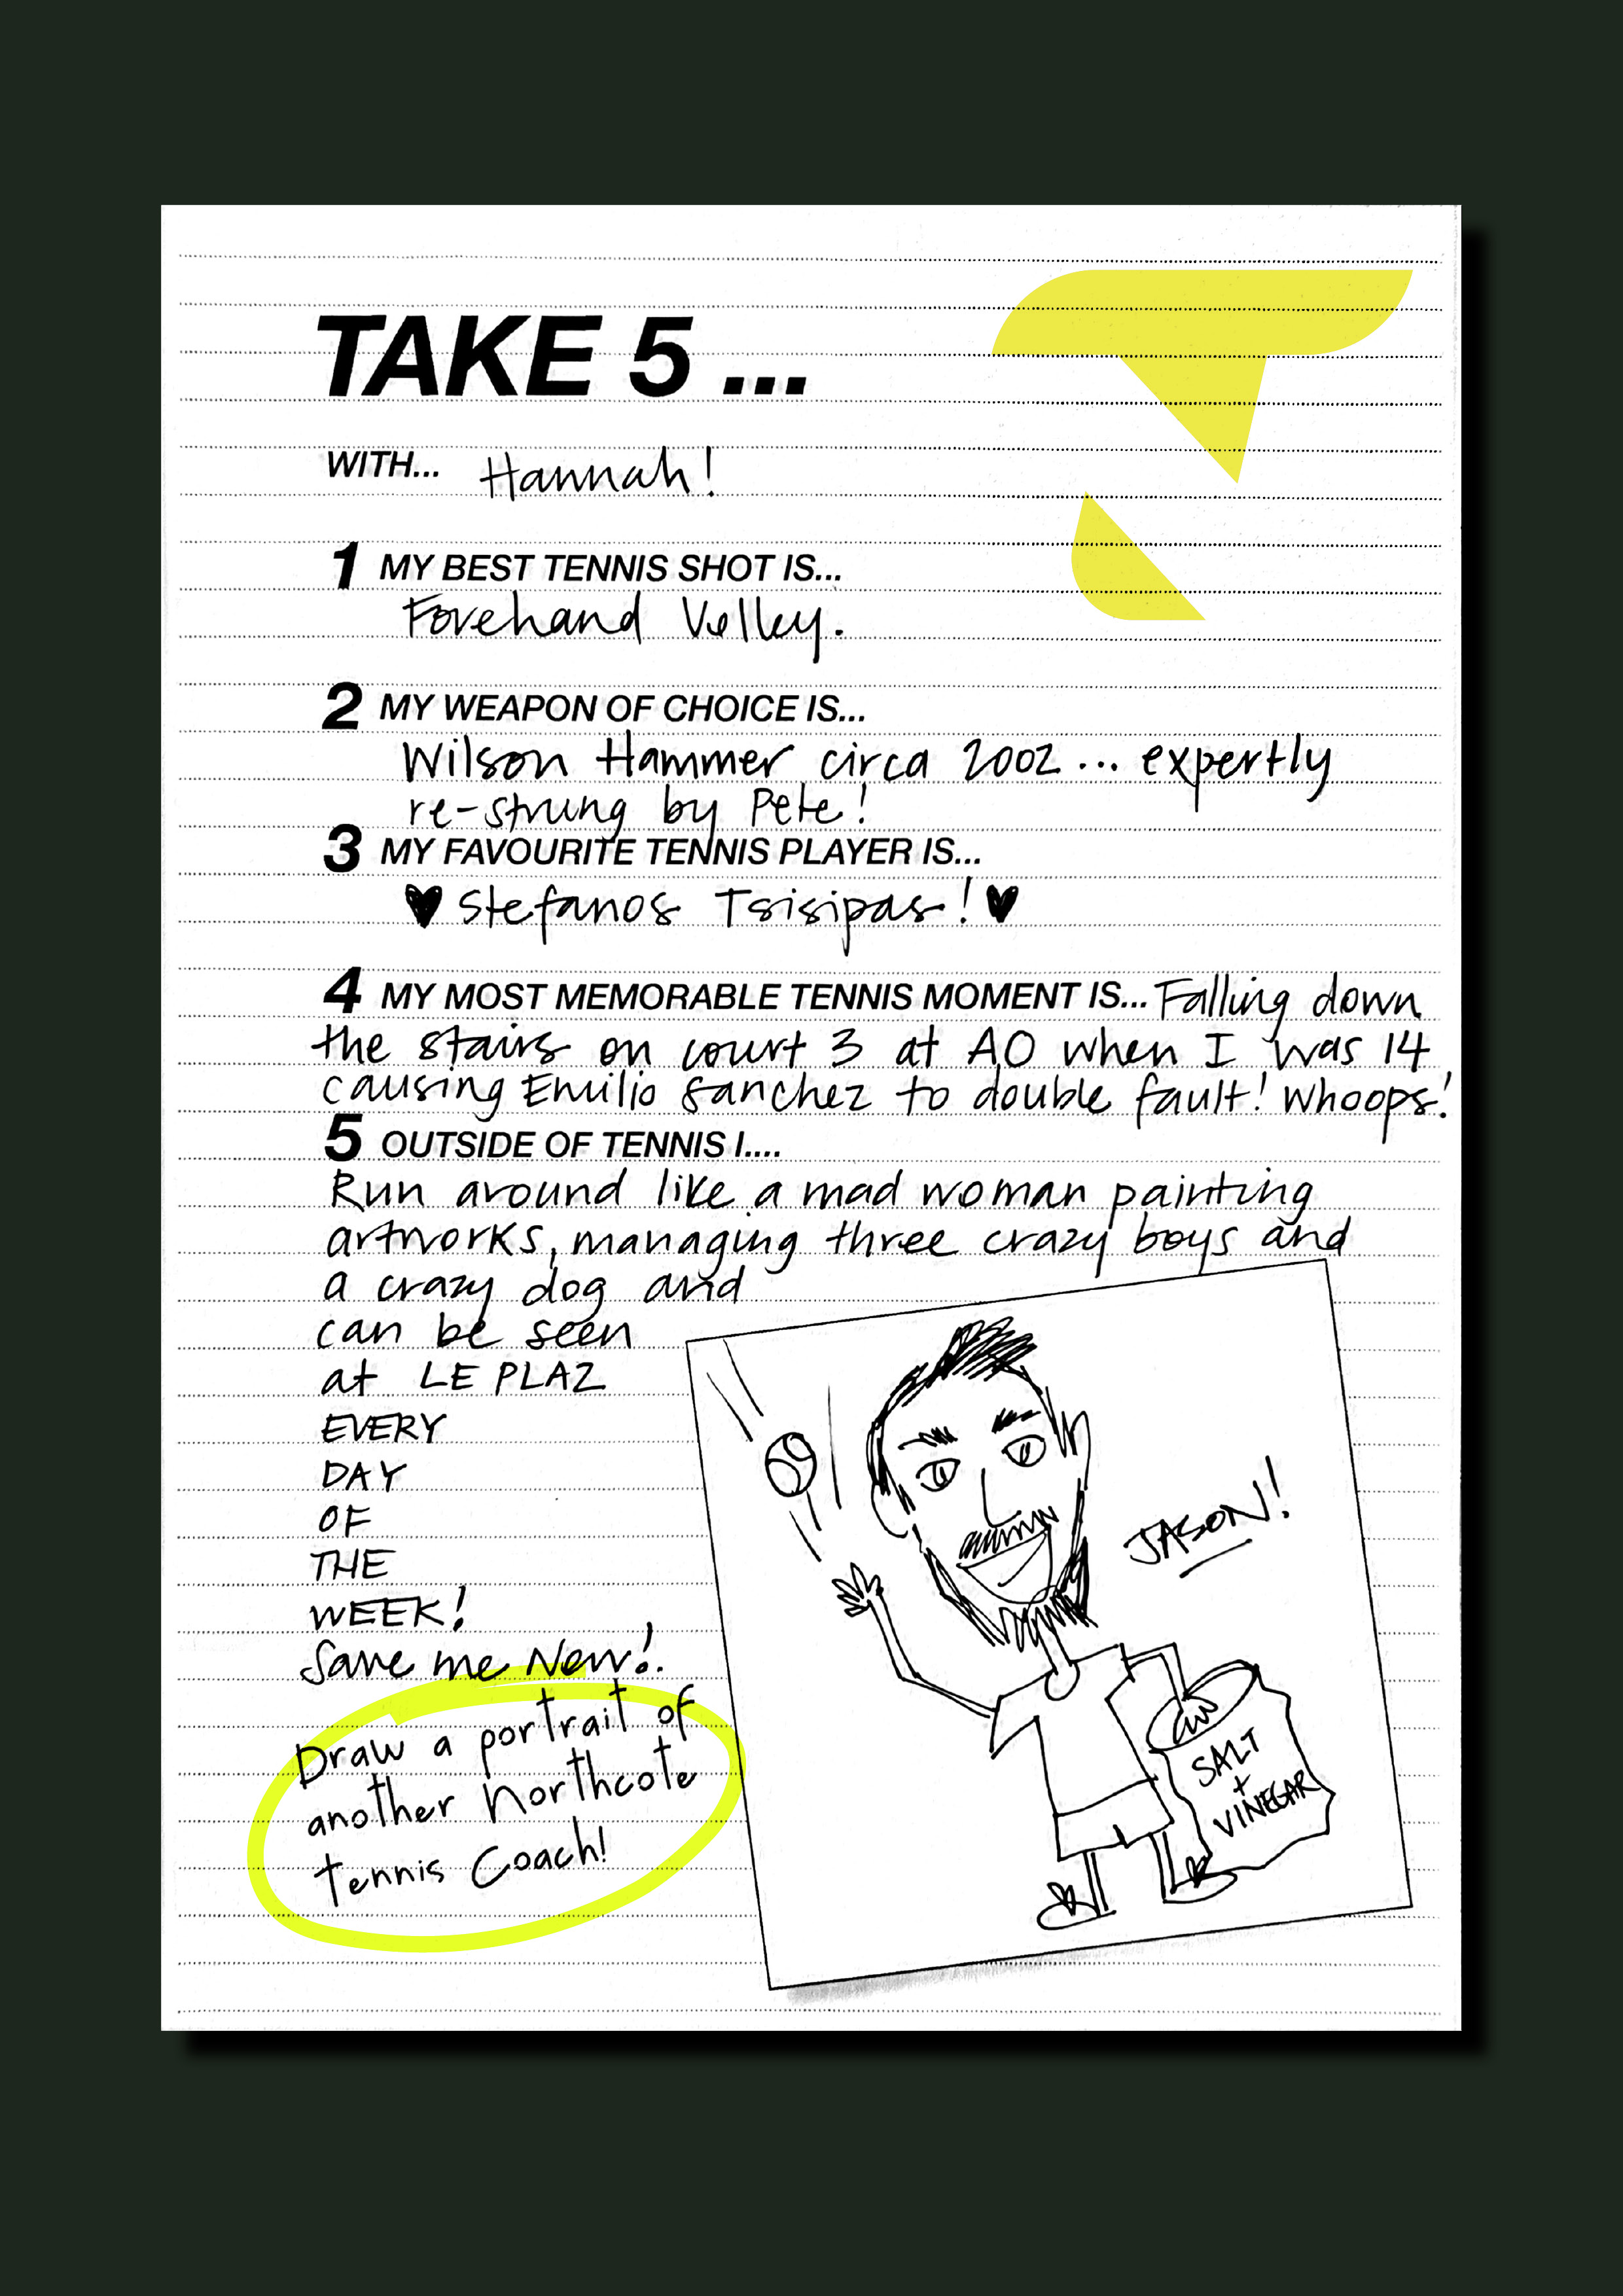 TAKE 5 ...
WITH... Hannah!
1 MY BEST TENNIS SHOT IS...
Forehand Volley.
2 MY WEAPON OF CHOICE IS...
Wilson Hammer circa 2002... expertly
re-strung by Pete!
3 MY FAVOURITE TENNIS PLAYER IS...
♥ Stefanos Tsisipas! ♥
4 MY MOST MEMORABLE TENNIS MOMENT IS... Falling down
the stairs on court 3 at AO when I was 14
causing Emilio Sanchez to double fault! Whoops!
5 OUTSIDE OF TENNIS I....
Run around like a mad woman painting
artworks, managing three crazy boys and
a crazy dog and
can be seen
at LE PLAZ
EVERY
DAY
OF
THE
WEEK!
Save me Now!.
Draw a portrait of
another Northcote
Tennis Coach!
JASON!
SALT
+
VINEGAR